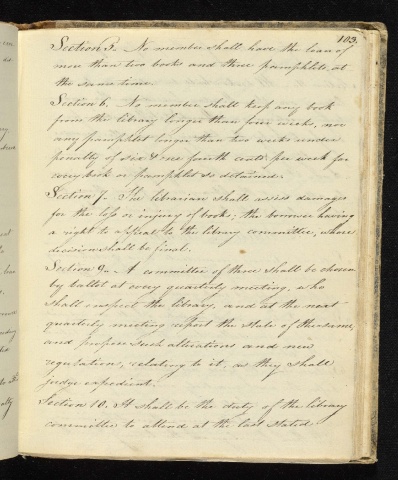 103.
Section 5. No member shall have the loan of
more than two books and three pamphlets, at
the same time.
Section 6. No member shall keep any book
from the library longer than four weeks, nor
any pamphlet longer than two weeks under
penalty of six & one fourth cents per week for
every book or pamphlet so detained.
Section 7. The librarian shall assess damages
for the loss or injury of books; the borrower having
a right to appeal to the library committee, whose
decision shall be final.
Section 9. A committee of three shall be chosen
by ballot at every quarterly meeting, who
shall inspect the library, and at the next
quarterly meeting report the state of the same,
and propose such alterations and new
regulations, relating to it, as they shall
judge expedient.
Section 10. It shall be the duty of the library
committee to attend at the last stated